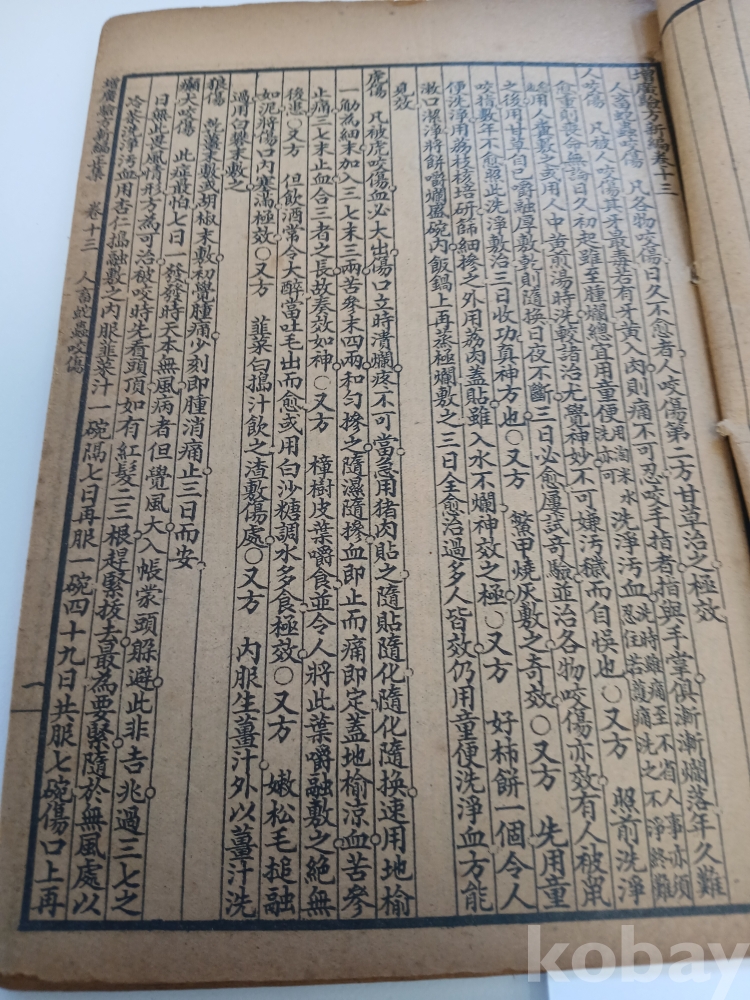 增廣驗方新編卷十三
人畜蛇蟲咬傷　凡各物咬傷日久不愈者人咬傷第二方甘草治之極效
人咬傷　凡被人咬傷其牙最毒若有牙黃入肉則痛不可忍咬手指者指與手掌俱漸漸爛落年久難
愈重則喪命無論日久初起雖至腫爛總宜用童便洗亦可用淘米水洗淨污血洗時雖痛至不省人事亦須忍住若道痛洗之不淨終難
愈用人糞敷之或用人中黃煎湯時洗較諸治尤覺神妙不可嫌汚穢而自悞也○又方　照前洗淨
之後用甘草自己嚼融厚敷乾則隨換日夜不斷三日必愈屢試奇驗並治各物咬傷亦效有人被鼠
咬指數年不愈照此洗淨敷治三日收功真神方也○又方　鱉甲燒灰敷之奇效○又方　先用童
便洗淨用荔枝核培研篩細摻之外用荔肉蓋貼雖入水不爛神效之極○又方　好柿餅一個令人
漱口潔淨將餅嚼爛盛碗內飯鍋上再蒸極爛敷之三日全愈治過多人皆效仍用童便洗淨血方能
見效
虎傷　凡被虎咬傷血必大出傷口立時潰爛疼不可當急用猪肉貼之隨貼隨化隨化隨換速用地榆
一觔為細末加入三七末三兩苦參末四兩和勻摻之隨濕隨摻血即止而痛即定蓋地榆涼血苦參
止痛三七末止血合三者之長故奏效如神○又方　樟樹皮葉嚼食並令人將此葉嚼融敷之絕無
後患○又方　但飲酒常令大醉當吐毛出而愈或用白沙糖調水多食極效○又方　嫩松毛搥融
如泥將傷口內塞滿極效○又方　韮菜白搗汁飲之渣敷傷處○又方　內服生薑汁外以薑汁洗
過用白礬末敷之
狼傷　乾薑末敷或胡椒末敷初覺腫痛少刻即腫消痛止三日而安
癲犬咬傷　此症最怕七日一發發時天本無風病者但覺風大入帳蒙頭躲避此非吉兆過三七之
日無此進風情形方為可治被咬時先看頭頂如有紅髮二三根趕緊拔去最為要緊隨於無風處以
冷茶洗淨污血用杏仁搗融敷之內服韮菜汁一碗隔七日再服一碗四十九日共服七碗傷口上再
增廣驗方新編正集　卷十三　人畜蛇蟲咬傷　一
kobay